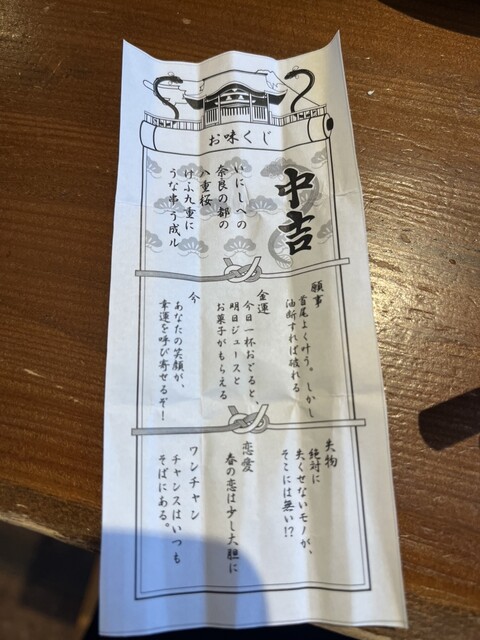 お味くじ
中吉
いにしへの
奈良の都の
八重桜
けふ九重に
うな串う成ル
願事
首尾よく叶う。しかし
油断すれば破れる
金運
今日一杯おごると、
明日ジュースと
お菓子がもらえる
今
あなたの笑顔が、
幸運を呼び寄せるぞ！
失物
絶対に
失くせないモノが、
そこには無い!?
恋愛
春の恋は少し大胆に
ワンチャン
チャンスはいつも
そばにある。